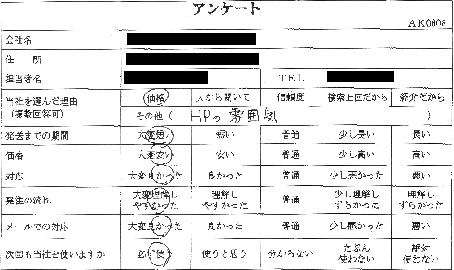 アンケート
AK0808
会社名
住 所
担当者名 TEL
当社を選んだ理由 価格 人から聞いて 信頼度 検索上位だから 紹介だから
(複数回答可) その他( HPの雰囲気 )
発送までの期間 大変短い 短い 普通 少し長い 長い
価格 大変安い 安い 普通 少し高い 高い
対応 大変良かった 良かった 普通 少し悪かった 悪い
発注の流れ 大変理解し 理解し 普通 少し理解し 理解し
やすかった やすかった ずらかった ずらかった
メールでの対応 大変良かった 良かった 普通 少し悪かった 悪い
次回も当社を使いますか 必ず使う 使うと思う 分からない たぶん 絶対
使わない 使わない